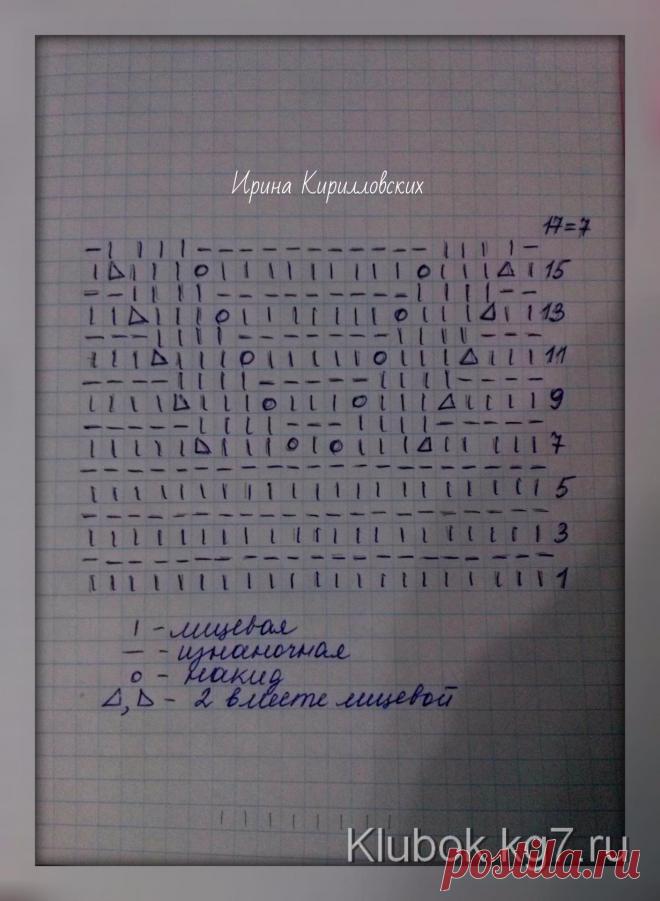 Ирина Кирилловских
17=7
15
13
11
9
7
5
3
1
I - лицевая
— - изнаночная
o - накид
△, ▷ - 2 вместе лицевой
Klubok.kg7.ru
postila.ru